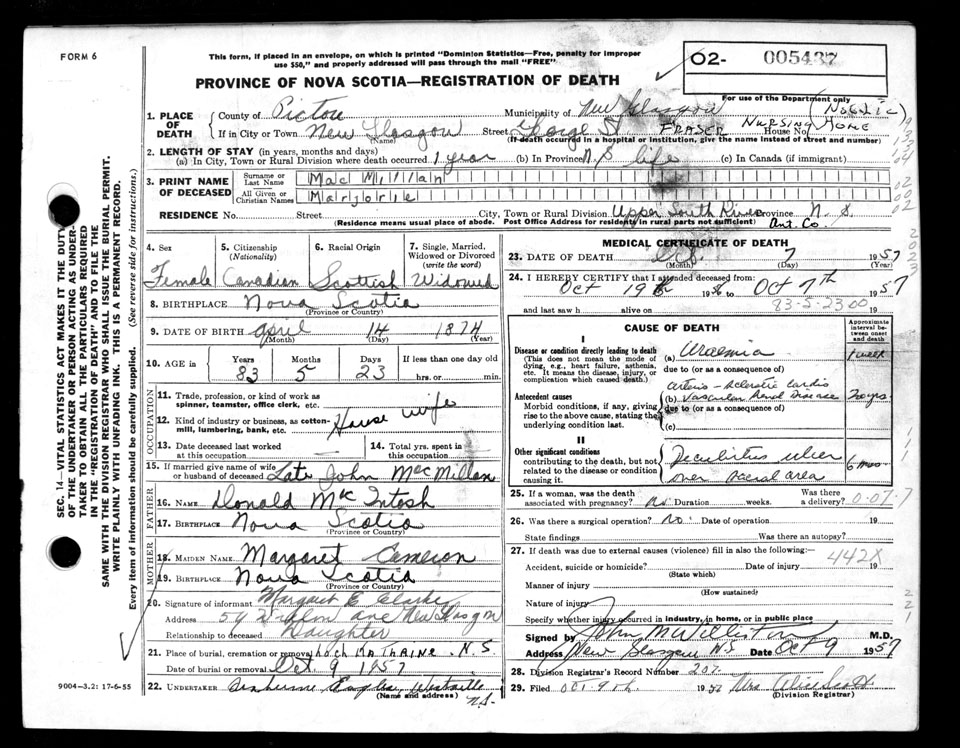 FORM 6
This form, if placed in an envelope, on which is printed "Dominion Statistics—Free, penalty for improper
use $50," and properly addressed will pass through the mail "FREE"
O2- 005437
PROVINCE OF NOVA SCOTIA—REGISTRATION OF DEATH
For use of the Department only
1. PLACE OF DEATH
County of Pictou Municipality of New Glasgow
If in City or Town New Glasgow Street George St FRASER NURSING HOME House No
(Name) (If death occurred in a hospital or institution, give the name instead of street and number)
2. LENGTH OF STAY (in years, months and days)
(a) In City, Town or Rural Division where death occurred 1 year (b) In Province N.S life (c) In Canada (if immigrant)
3. PRINT NAME OF DECEASED
Surname or Last Name MacMillan
All Given or Christian Names Marjorie
RESIDENCE No. Street City, Town or Rural Division Upper South River Province N. S.
(Residence means usual place of abode. Post Office Address for residents in rural parts not sufficient) Ant. Co.
4. Sex 5. Citizenship (Nationality) 6. Racial Origin 7. Single, Married, Widowed or Divorced (write the word)
Female Canadian Scottish Widowed
8. BIRTHPLACE Nova Scotia
(Province or Country)
9. DATE OF BIRTH April 14 1874
(Month) (Day) (Year)
10. AGE in Years Months Days If less than one day old
83 5 23 hrs. or min.
OCCUPATION
11. Trade, profession, or kind of work as spinner, teamster, office clerk, etc.
12. Kind of industry or business, as cotton-mill, lumbering, bank, etc. House wife
13. Date deceased last worked at this occupation 14. Total yrs. spent in this occupation
15. If married give name of wife or husband of deceased Late John MacMillan
FATHER
16. NAME Donald McIntosh
17. BIRTHPLACE Nova Scotia
(Province or Country)
MOTHER
18. MAIDEN NAME Margaret Cameron
19. BIRTHPLACE Nova Scotia
(Province or Country)
20. Signature of informant Margaret E Clarke
Address 54 ave New Glasgow
Relationship to deceased Daughter
21. Place of burial, cremation or removal Loch KATHRINE, N.S.
Date of burial or removal Oct. 9 1957
22. UNDERTAKER Westville N.S.
(Name and address)
9004—3.2: 17-6-55
MEDICAL CERTIFICATE OF DEATH
23. DATE OF DEATH Oct 7 1957
(Month) (Day) (Year)
24. I HEREBY CERTIFY that I attended deceased from:
Oct 19 to Oct 7th 1957
83-5-2300
and last saw h alive on 19
CAUSE OF DEATH
Approximate interval between onset and death
I
Disease or condition directly leading to death (a) Uraemia 1 week
(This does not mean the mode of dying, e.g., heart failure, asthenia, etc. It means the disease, injury, or complication which caused death.)
due to (or as a consequence of)
Antecedent causes
Morbid conditions, if any, giving rise to the above cause, stating the underlying condition last.
arterio-sclerotic cardio
(b) Vascular Renal Disease 20 yrs
due to (or as a consequence of)
(c)
II
Other significant conditions
contributing to the death, but not related to the disease or condition causing it.
Decubitus ulcer over sacral area 6 mos
25. If a woman, was the death associated with pregnancy? No Duration weeks. Was there a delivery? 0-07-7
26. Was there a surgical operation? No. Date of operation 19
State findings Was there an autopsy?
27. If death was due to external causes (violence) fill in also the following:—
442X
Accident, suicide or homicide? Date of injury 19
(State which)
Manner of injury
(How sustained)
Nature of injury
Specify whether injury occurred in industry, in home, or in public place
Signed by John M Williston M.D.
Address New Glasgow N.S Date Oct 9 1957
28. Division Registrar's Record Number 207.
29. Filed Oct. 9th. 19 Mrs Alice Scott
(Division Registrar)
SEC. 14—VITAL STATISTICS ACT MAKES IT THE DUTY
OF THE UNDERTAKER OR PERSON ACTING AS UNDER-
TAKER TO OBTAIN ALL THE PARTICULARS REQUIRED
IN THE "REGISTRATION OF DEATH" AND TO FILE THE
SAME WITH THE DIVISION REGISTRAR WHO SHALL ISSUE THE BURIAL PERMIT.
WRITE PLAINLY WITH UNFADING INK. THIS IS A PERMANENT RECORD.
Every item of information should be carefully supplied. (See reverse side for instructions.)